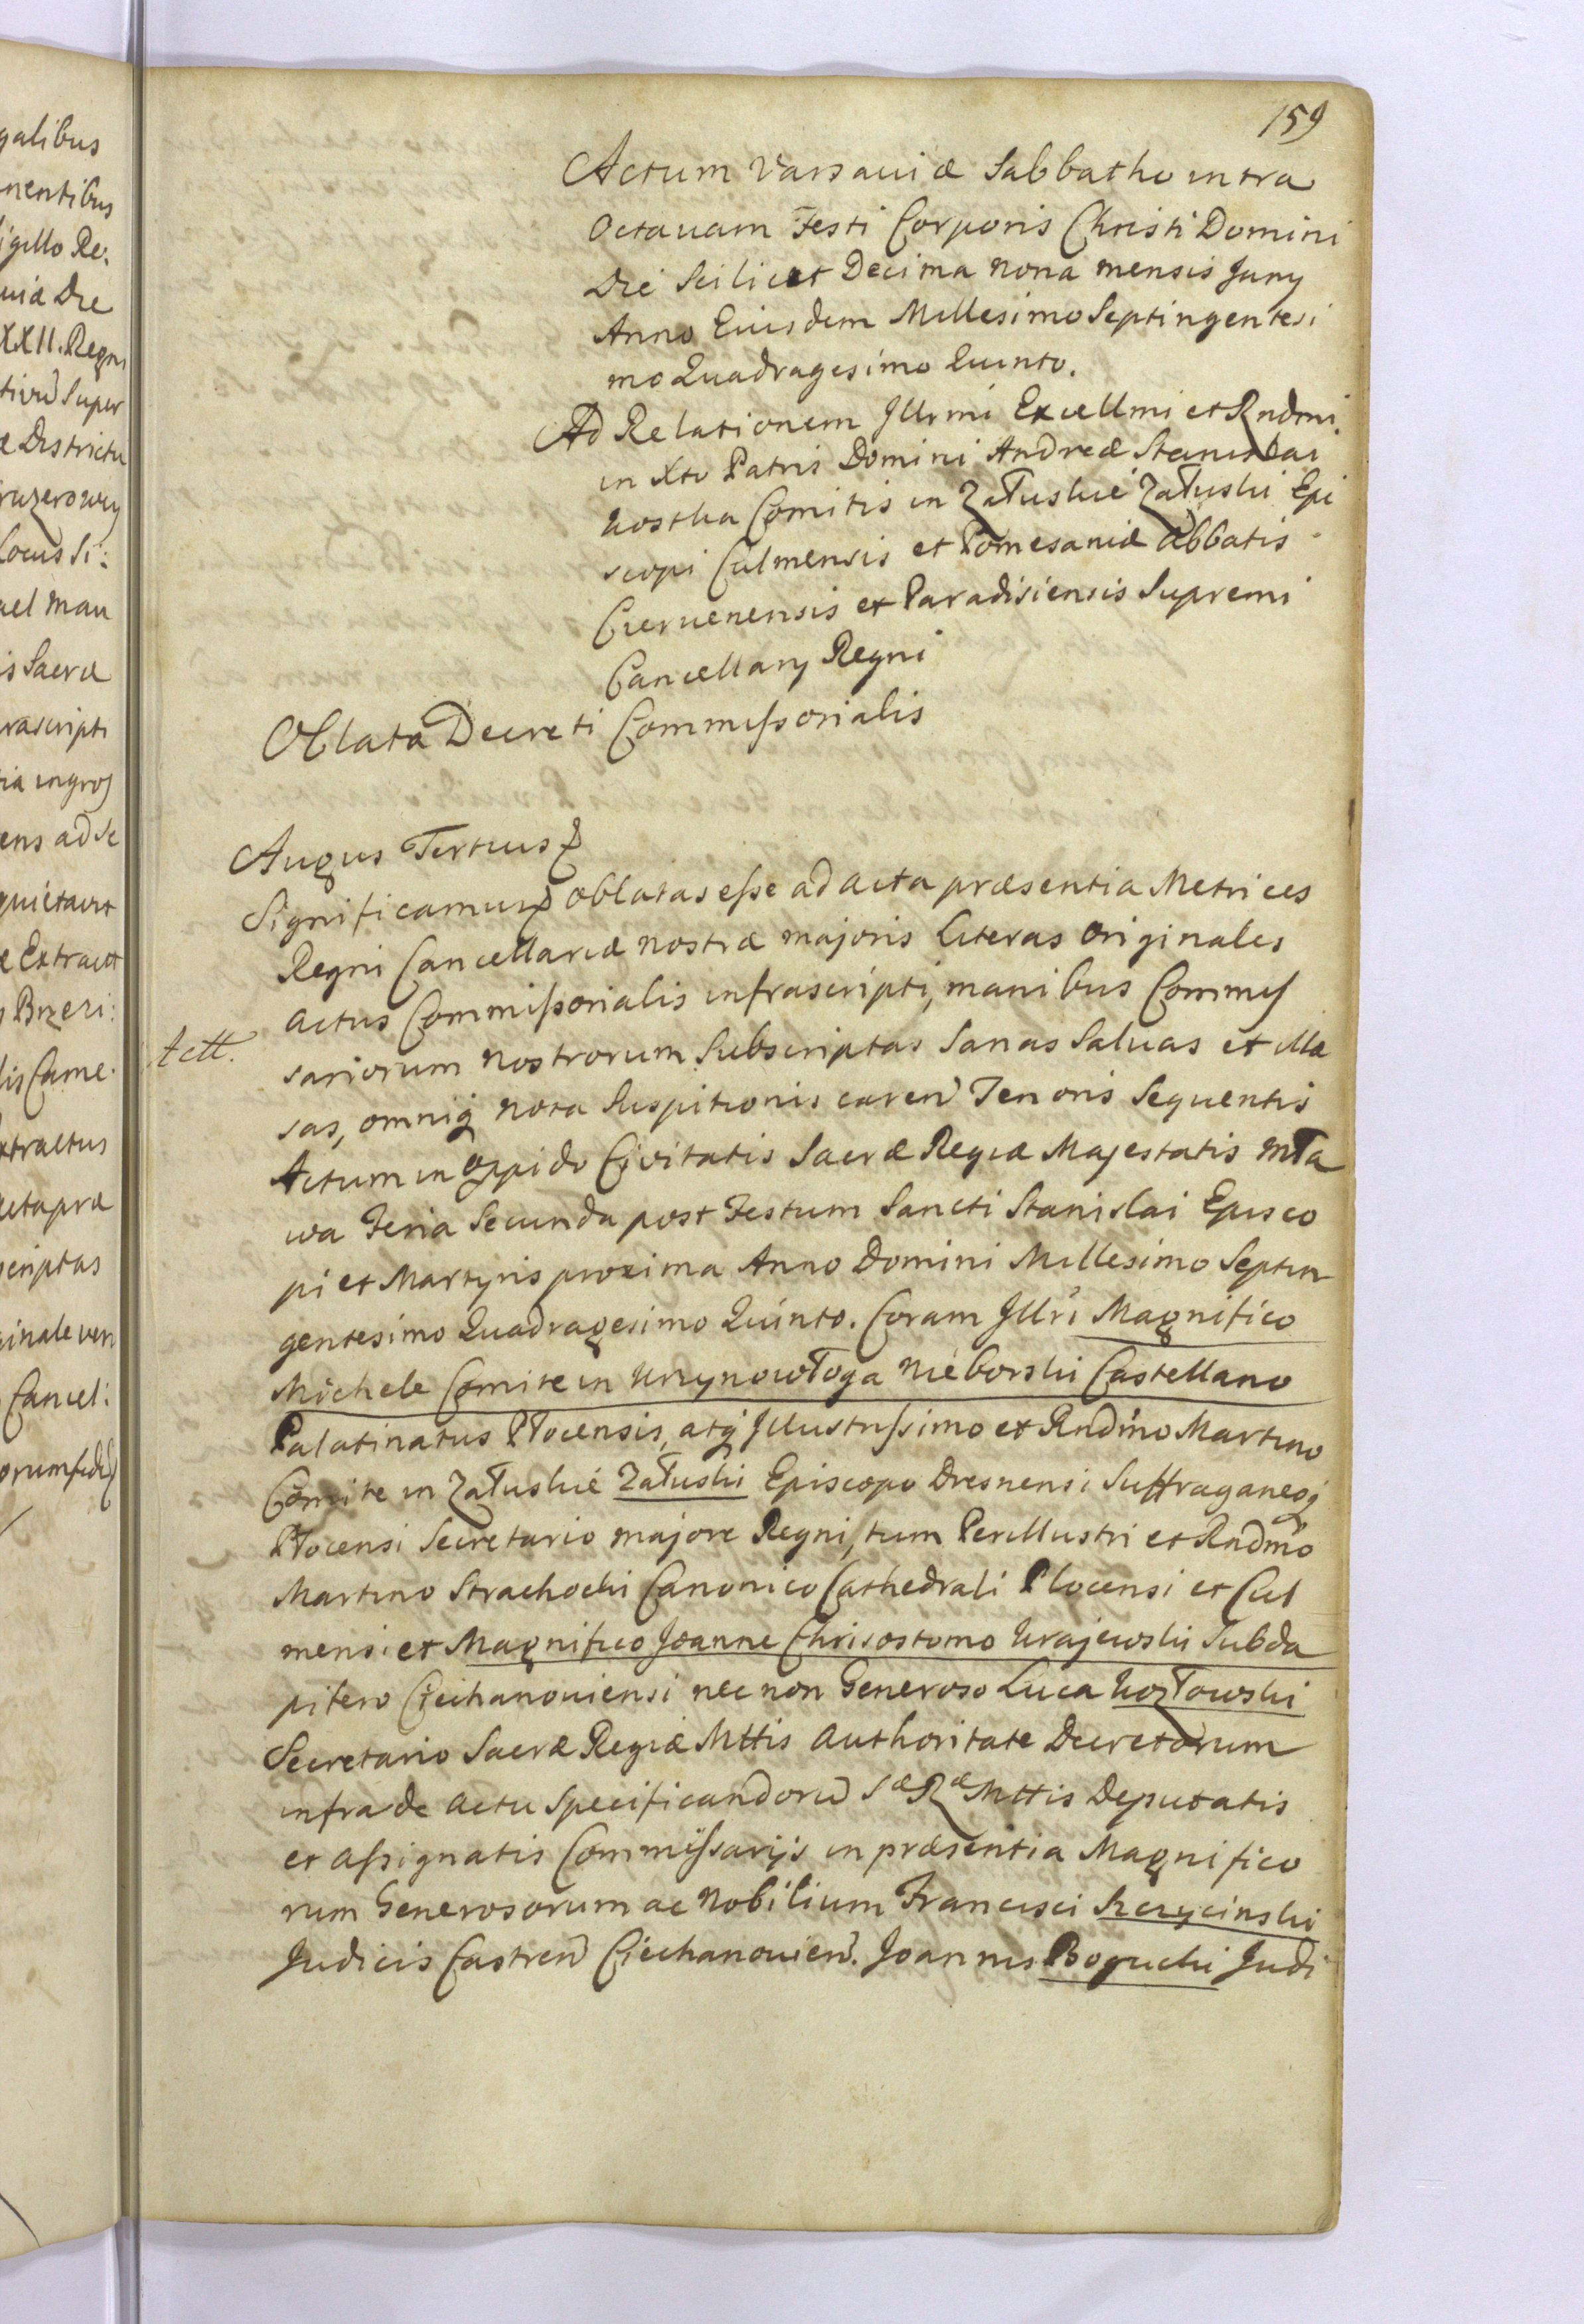 159
Actum Varsaviæ Sabbatho intra
Octauam Festi Corporis Christi Domini
Die Scilicet Decima Nona mensis Juny
Anno Eiusdem Millesimo Septingentesi
mo Quadragesimo Quinto.
Ad Relationem Jllrmi Excellmi et Rndmi
in Xto Patris Domini Andreæ Stanislai
Kostka Comitis in Załuskie Załuski Epi
scopi Culmensis et Pomesaniæ Abbatis
Czervenensis et Paradisiensis Supremi
Cancellary Regni
Oblata Decreti Commissorialis
Augus Tertius
Significamus oblatas esse ad acta præsentia Metrices
Regni Cancellariæ nostræ majoris Literas originales
actus Commissorialis infrascripti, manibus Commis
sariorum nostrorum Subscriptas Sanas Saluas et illæ
sas, omniq nota Suspitionis caren Tenoris Sequentis
Actum in Oppido Civitatis Sacræ Regiæ Majestatis Mła
wa Feria Secunda post Festum Sancti Stanislai Episco
pi et Martyris proxima Anno Domini Millesimo Septin
gentesimo Quadragesimo Quinto. Coram Jllri Magnifico
Michele Comite in Krzynowłoga Nieborski Castellano
Palatinatus Płocensis, atq Jllustrissimo et Rndmo Martino
Comite in Załuskie Załuski Episcopo Dresnensi Suffraganeoq
Płocensi Secretario majore Regni, tum Perillustri et Rndmo
Martino Strachocki Canonico Cathedrali Plocensi et Cul
mensi et Magnifico Joanne Chrisostomo Krajewski Subda
pifero Ciechanoviensi nec non Generoso Luca Kozłowski
Secretario Sacræ Regiæ Mttis Authoritate Decretorum
infra de actu Specificandoru Sæ Ræ Mttis Deputatis
et assignatis Commissarijs in præsentia Magnifico
rum Generosorum ac Nobilium Francisci Szczycinski
Judicis Castren Ciechanovien. Joannis Bogucki Judi